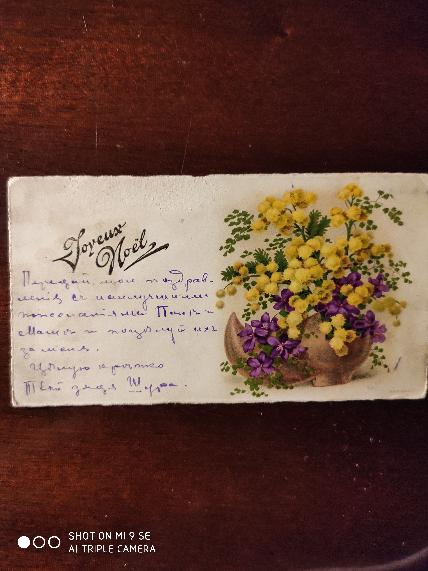 Joyeux
Noël
Передай мои поздрав-
ления съ наилучшими
пожеланиями Папѣ и
Мамѣ и поцѣлуй ихъ
за меня.
Цѣлую крѣпко
Твой дядя Шура.
SHOT ON MI 9 SE
AI TRIPLE CAMERA